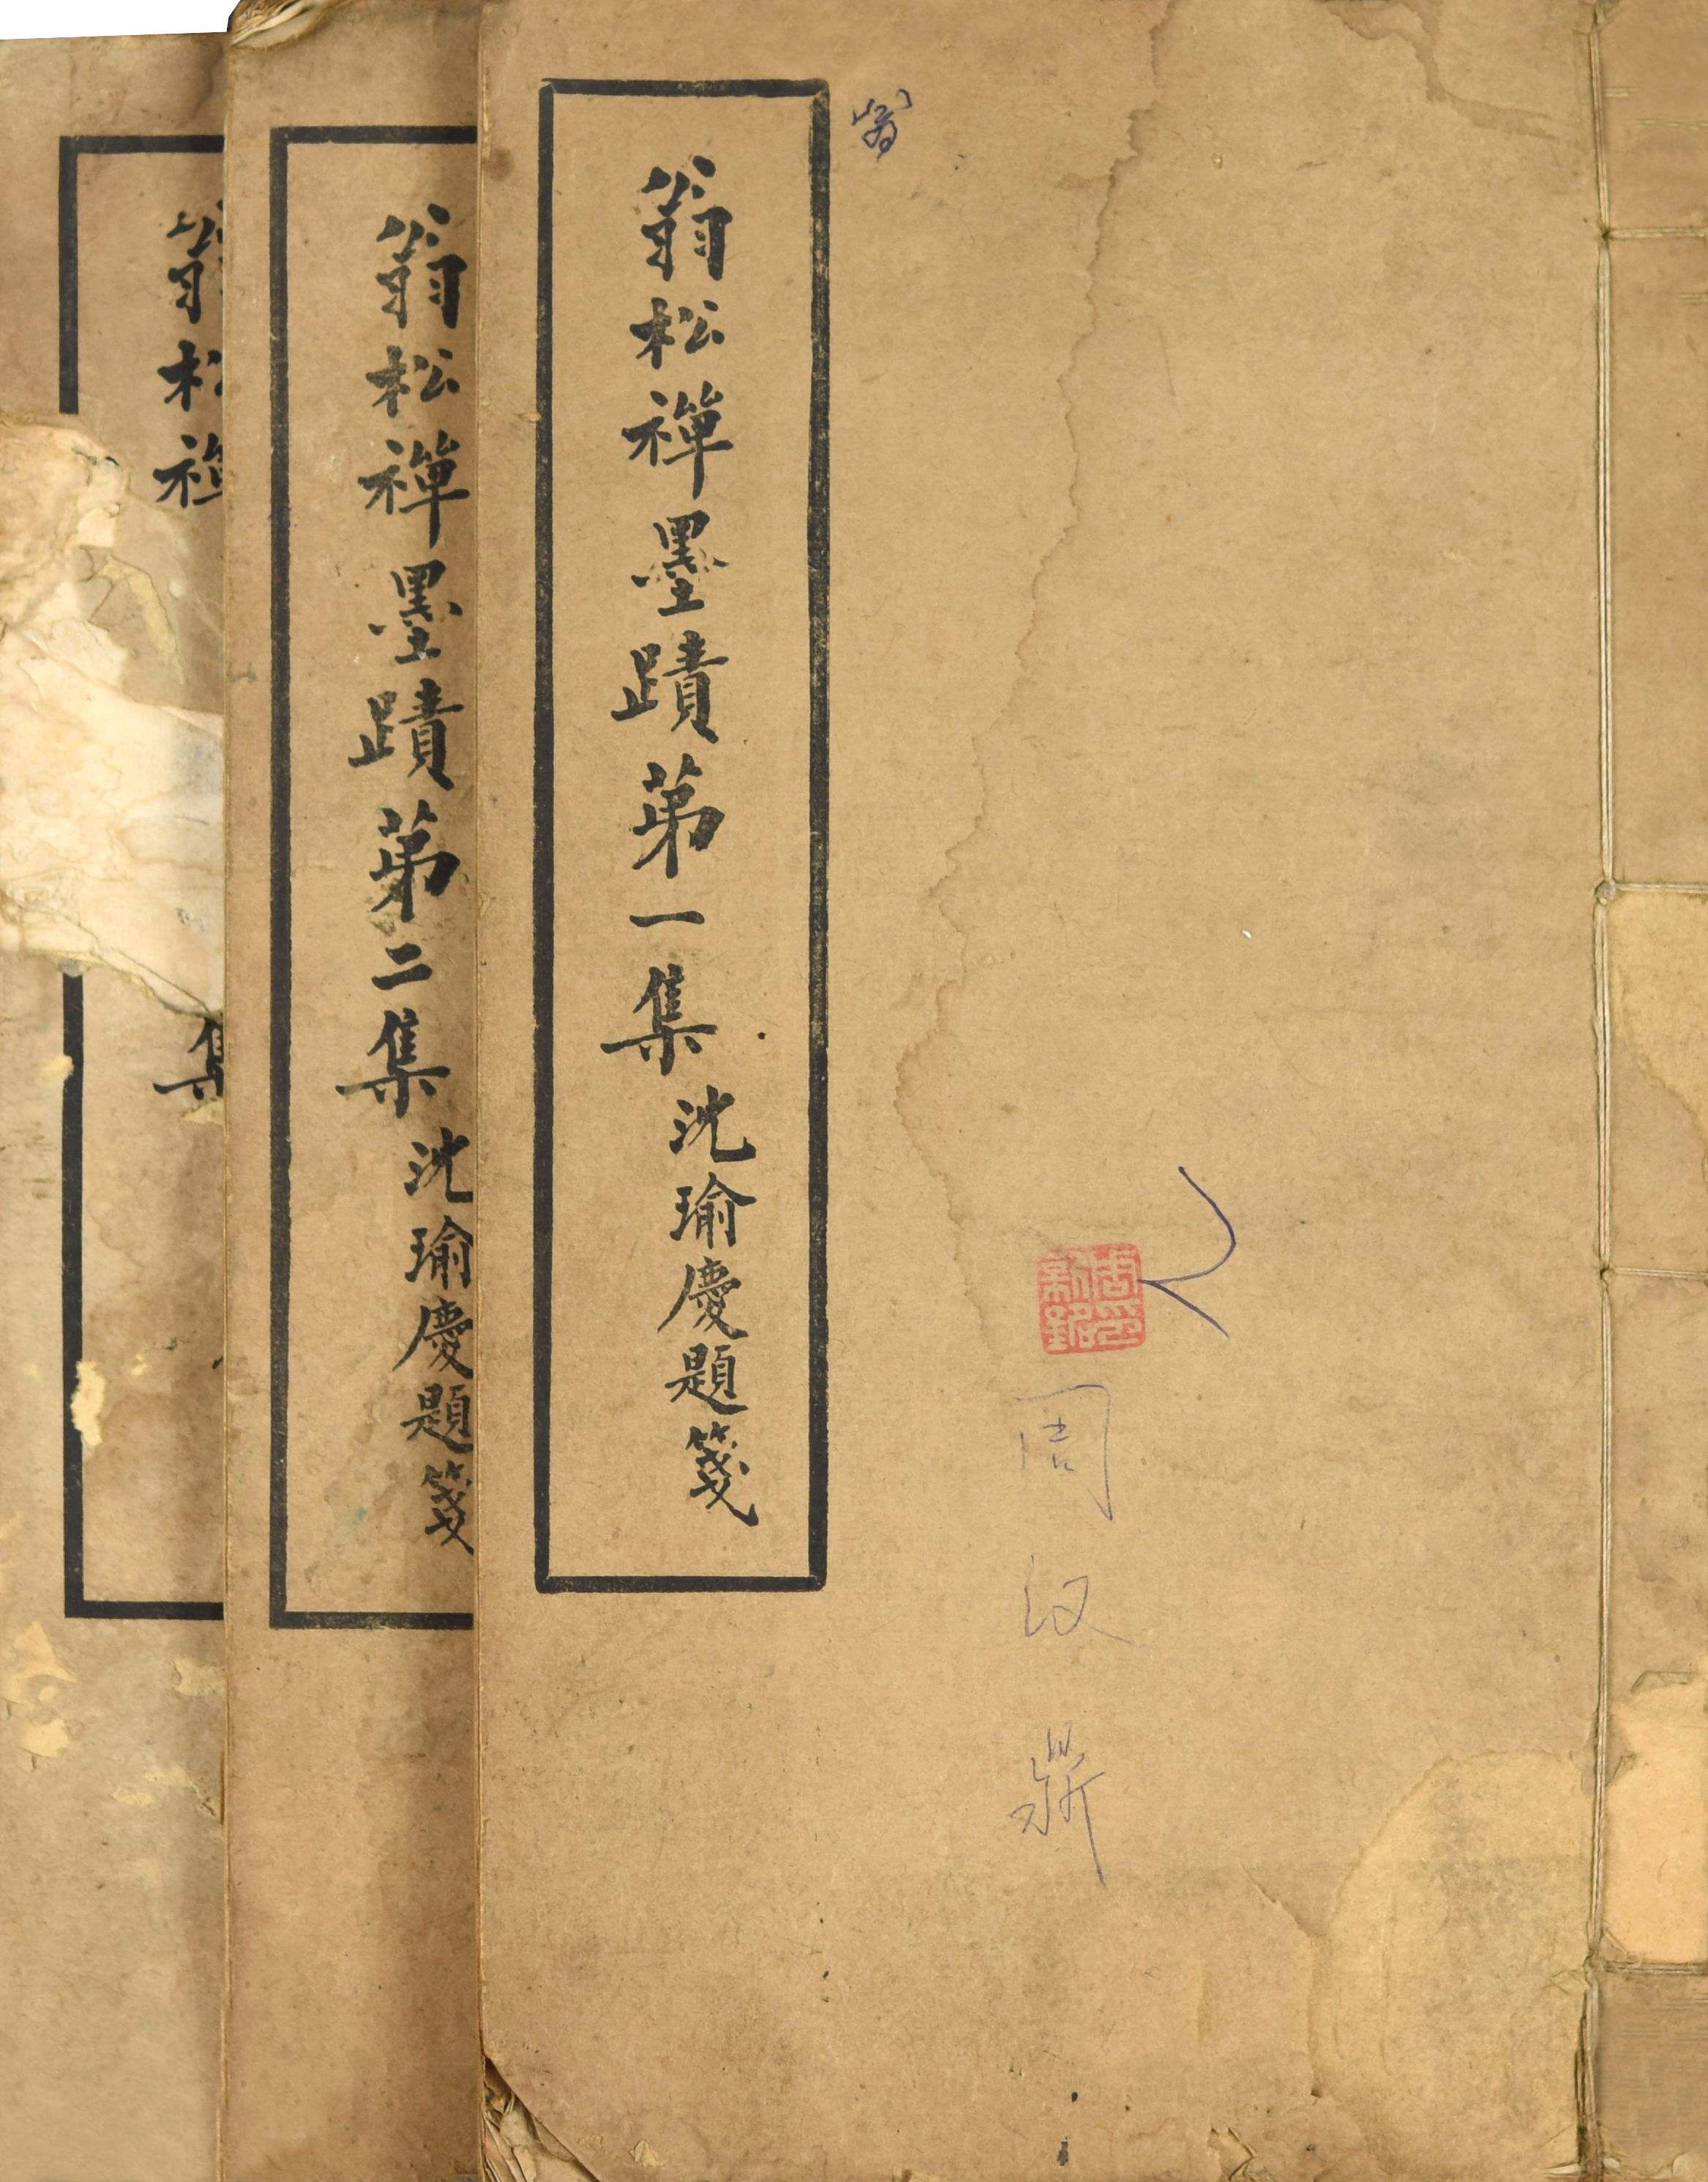 翁
翁松禪墨蹟苐一集
沈瑜慶題箋
周汉鼎
翁松禪墨蹟苐二集
沈瑜慶題箋
翁松禪
集